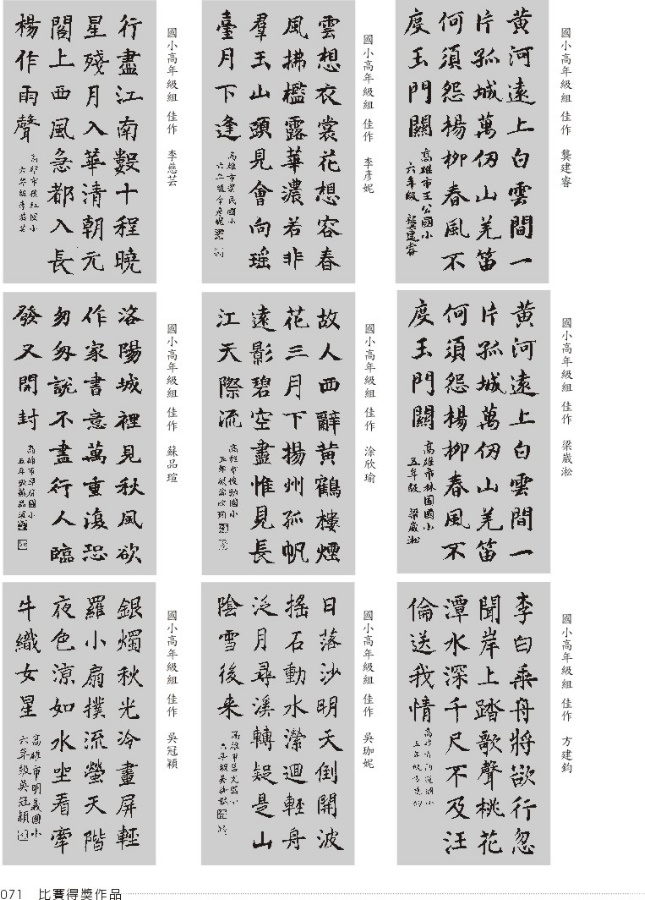 國小高年級組 佳作 龔建睿
黃河遠上白雲間一
片孤城萬仞山羌笛
何須怨楊柳春風不
度玉門關
高雄市王公國小
六年級 龔建睿
國小高年級組 佳作 李彥妮
雲想衣裳花想容春
風拂檻露華濃若非
羣玉山頭見會向瑤
臺月下逢
國小高年級組 佳作 李慈芸
行盡江南數十程曉
星殘月入華清朝元
閣上西風急都入長
楊作雨聲
六年級李慈芸
國小高年級組 佳作 梁崴淞
黃河遠上白雲間一
片孤城萬仞山羌笛
何須怨楊柳春風不
度玉門關
高雄市林園國小
五年級 梁崴淞
國小高年級組 佳作 涂欣瑜
故人西辭黃鶴樓煙
花三月下揚州孤帆
遠影碧空盡惟見長
江天際流
國小高年級組 佳作 蘇品瑄
洛陽城裡見秋風欲
作家書意萬重復恐
匆匆說不盡行人臨
發又開封
國小高年級組 佳作 方建鈞
李白乘舟將欲行忽
聞岸上踏歌聲桃花
潭水深千尺不及汪
倫送我情
國小高年級組 佳作 吳珈妮
日落沙明天倒開波
搖石動水瀠迴輕舟
泛月尋溪轉疑是山
陰雪後来
國小高年級組 佳作 吳冠穎
銀燭秋光冷畫屏輕
羅小扇撲流螢天階
夜色涼如水坐看牽
牛織女星
高雄市明義國小
六年級吳冠穎
071 比賽得獎作品